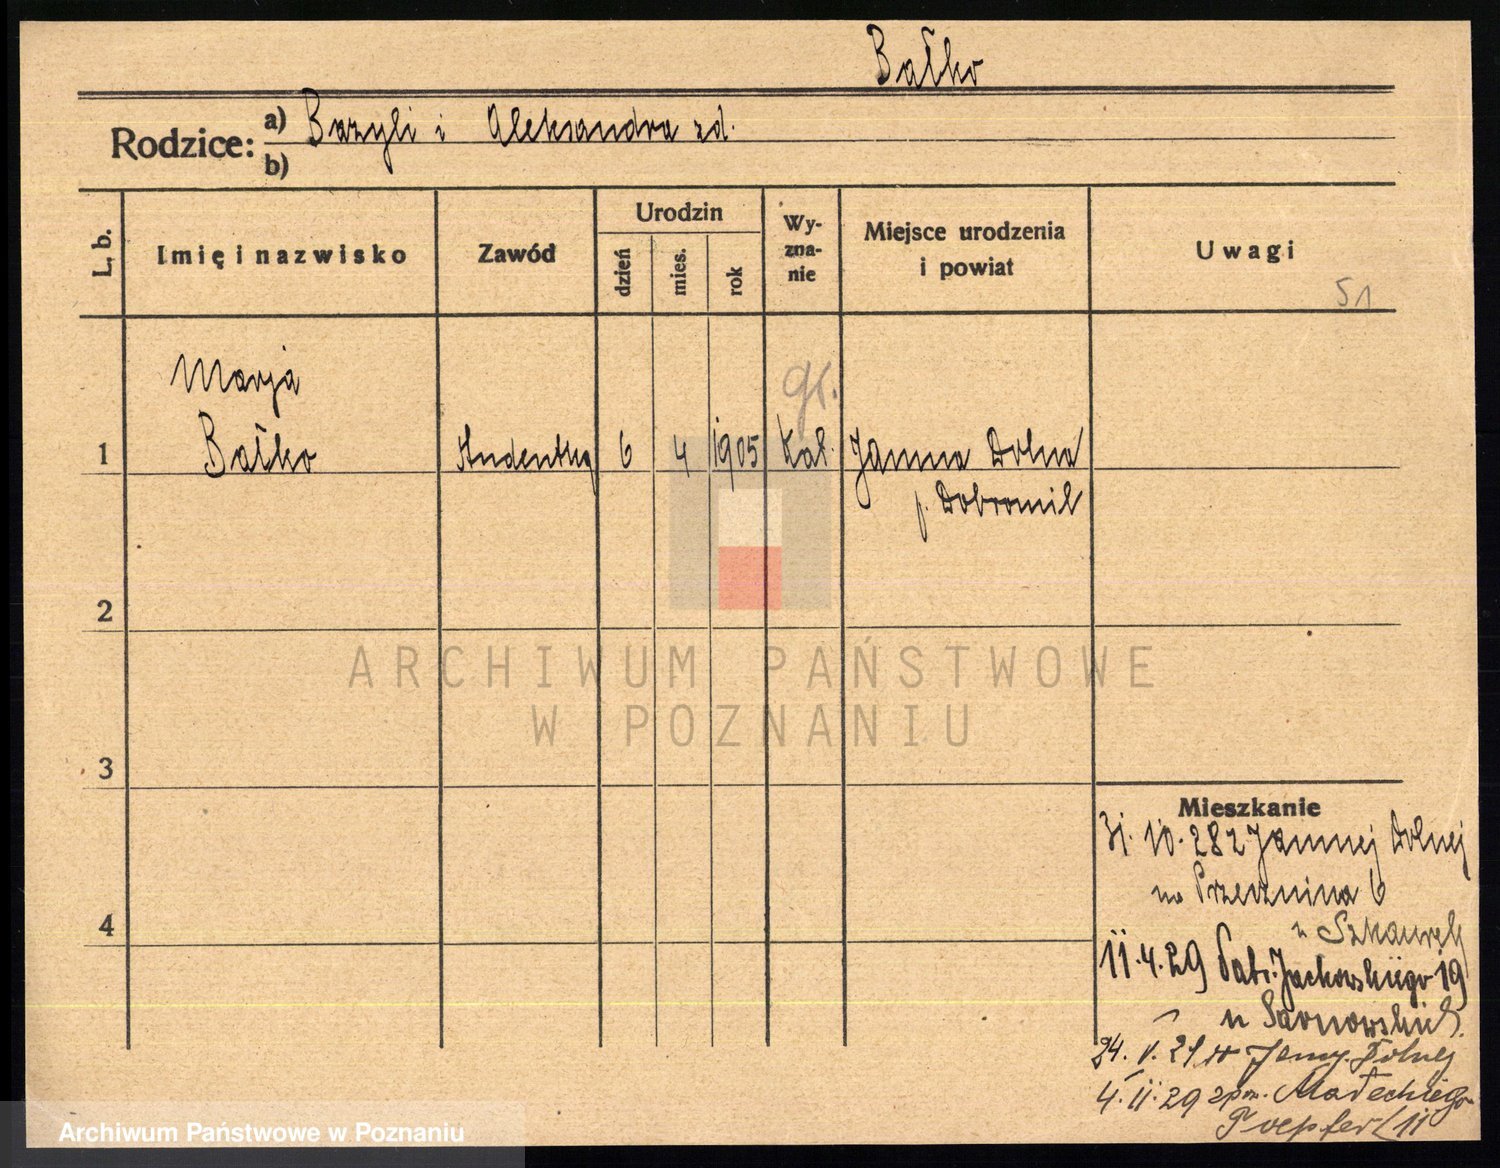 Bałko
Rodzice: a) Bazyli i Aleksandra zd.
b)
L. b.
Imię i nazwisko
Zawód
Urodzin
dzień
mies.
rok
Wy-
zna-
nie
Miejsce urodzenia
i powiat
Uwagi
51
Marja
gr.
1 Bałko Studentka 6 4 1905 Kat. Jamna Dolna
p. Dobromil
2
ARCHIWUM PAŃSTWOWE
W POZNANIU
3
Mieszkanie
31.10.28 z Jamnej Dolnej
na 6
4
u
11.4.29 Jackowskiego 19
u
24. V. 29 Dolnej
4. 11. 29 Małeckiego
11
Archiwum Państwowe w Poznaniu